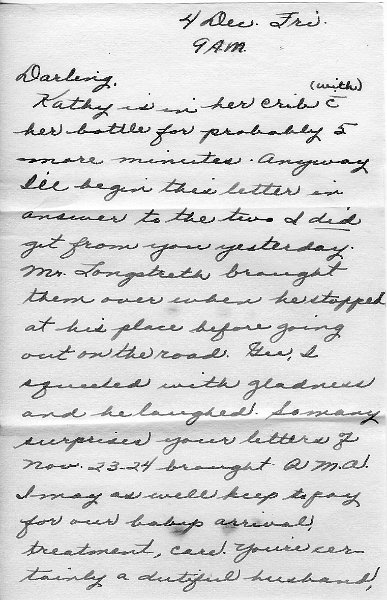 4 Dec. Fri.
9 A.M.
Darling,
(with)
Kathy is in her crib c̄
her bottle for probably 5
more minutes. Anyway
I'll begin this letter in
answer to the two I did
get from you yesterday.
Mr. Longstreth brought
them over when he stopped
at his place before going
out on the road. Gee, I
squeeled with gladness
and he laughed. So many
surprises your letters of
Nov. 23-24 brought. A.M.A.
I may as well keep to pay
for our baby's arrival,
treatment, care. You're cer-
tainly a dutiful husband,